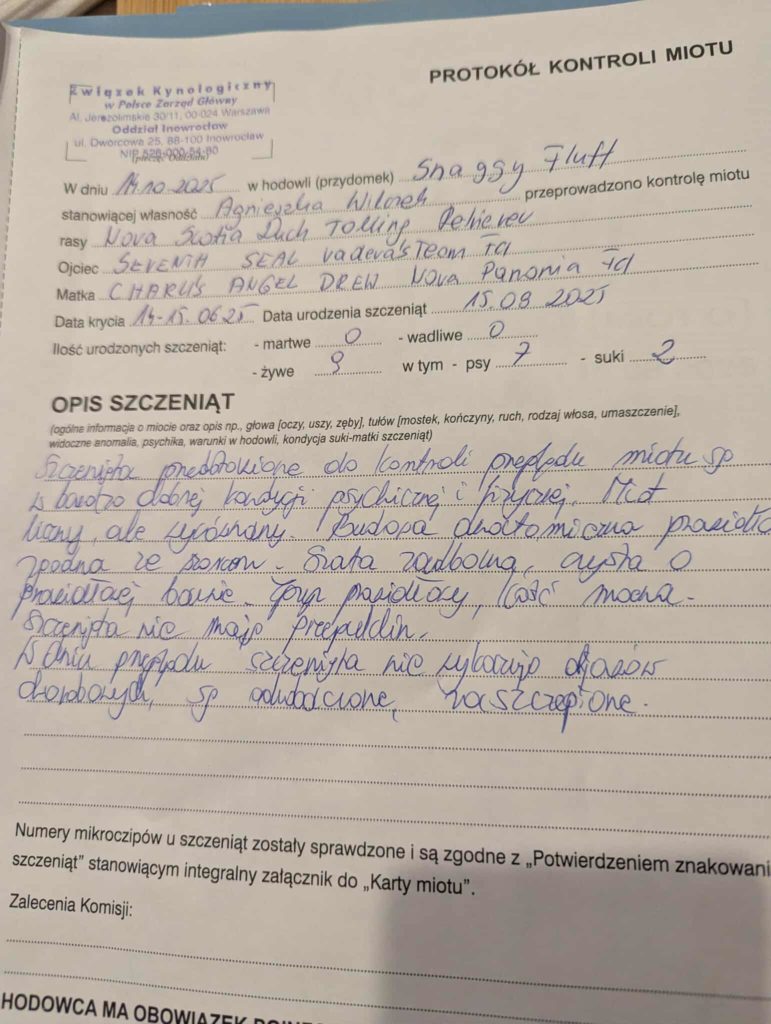 PROTOKÓŁ KONTROLI MIOTU
Związek Kynologiczny
w Polsce Zarząd Główny
Al. Jerozolimskie 30/11, 00-024 Warszawa
Oddział Inowrocław
ul. Dworcowa 25, 88-100 Inowrocław
NIP
W dniu 14.10.2025 w hodowli (przydomek) Shaggy Fluff
stanowiącej własność Agnieszka przeprowadzono kontrolę miotu
rasy Nova Scotia Duck Tolling Retriever
Ojciec SEVENTH SEAL Vadeva's Team FCI
Matka CHARUS ANGEL DREW Nova Panonia FCI
Data krycia 14-15.06.25 Data urodzenia szczeniąt 15.08.2025
Ilość urodzonych szczeniąt: - martwe 0 - wadliwe 0
- żywe 9 w tym - psy 7 - suki 2
OPIS SZCZENIĄT
(ogólne informacja o miocie oraz opis np., głowa [oczy, uszy, zęby], tułów [mostek, kończyny, ruch, rodzaj włosa, umaszczenie],
widoczne anomalia, psychika, warunki w hodowli, kondycja suki-matki szczeniąt)
Szczenięta przedstawione do kontroli przeglądu miotu są
w bardzo dobrej kondycji psychicznej i fizycznej. Miot
liczny, ale wyrównany. Budowa anatomiczna prawidłowa
zgodna ze wzorcem. Szata czysta o
prawidłowej barwie. Zgryz prawidłowy, kość mocna.
Szczenięta nie mają przepuklin.
W dniu przeglądu szczenięta nie wykazują objawów
chorobowych, są odrobaczone, zaszczepione.
Numery mikroczipów u szczeniąt zostały sprawdzone i są zgodne z „Potwierdzeniem znakowani
szczeniąt” stanowiącym integralny załącznik do „Karty miotu”.
Zalecenia Komisji:
HODOWCA MA OBOWIĄZEK